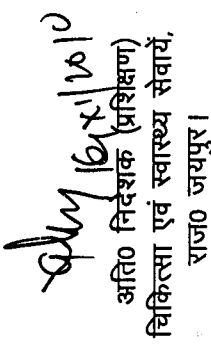 16/XI/2010
अति० निदेशक (प्रशिक्षण)
चिकित्सा एवं स्वास्थ्य सेवायें,
राज० जयपुर।